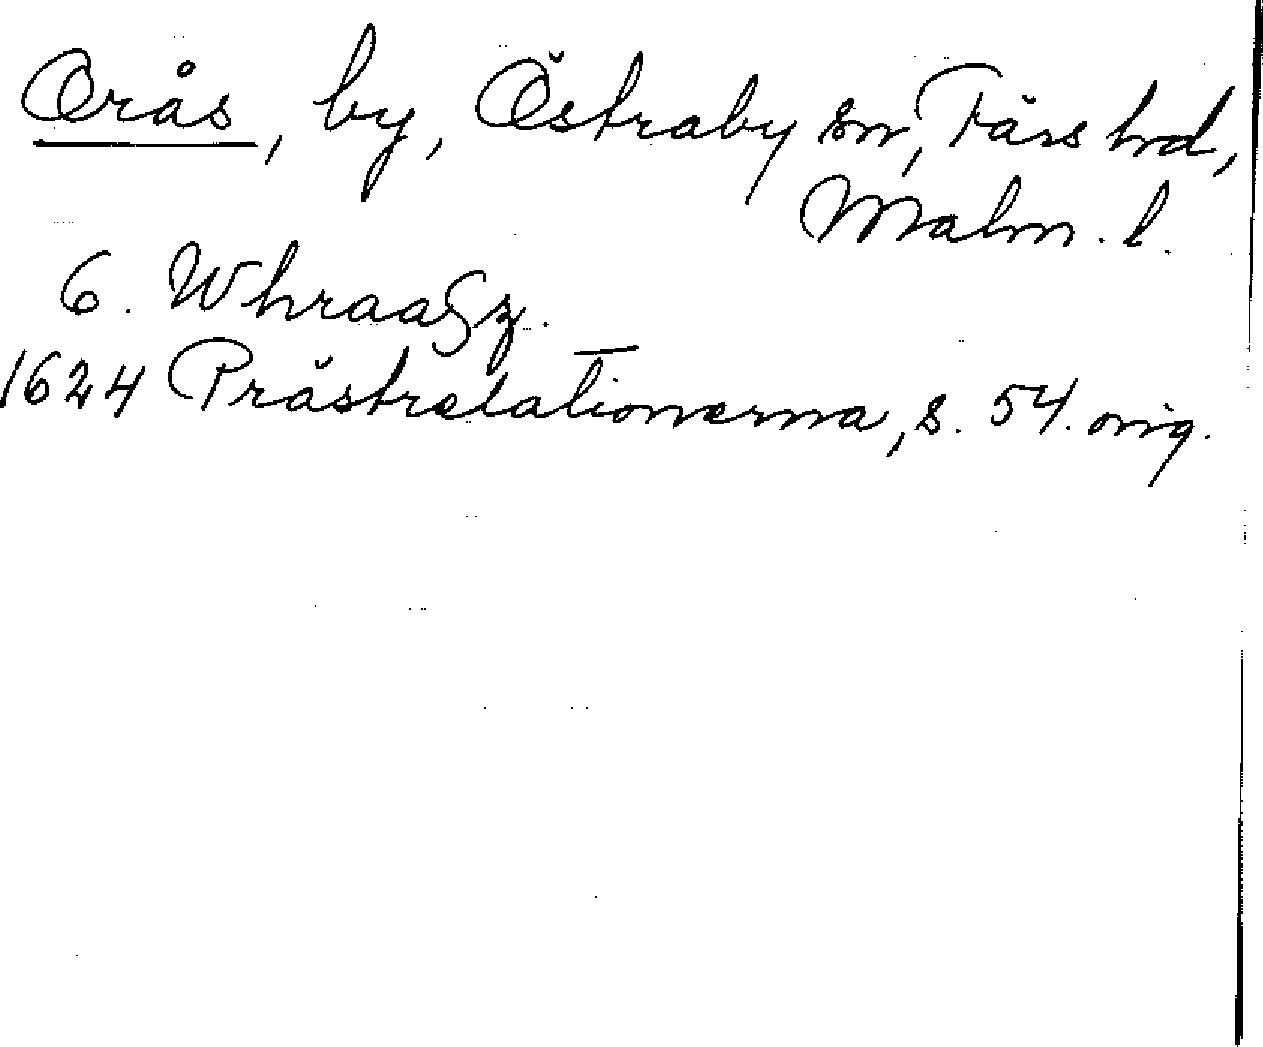 Orås, by, Östraby sn, Färs hrd,
Malm. l.
6. Whraasz.
1624 Prästrelationerna, s. 54. orig.